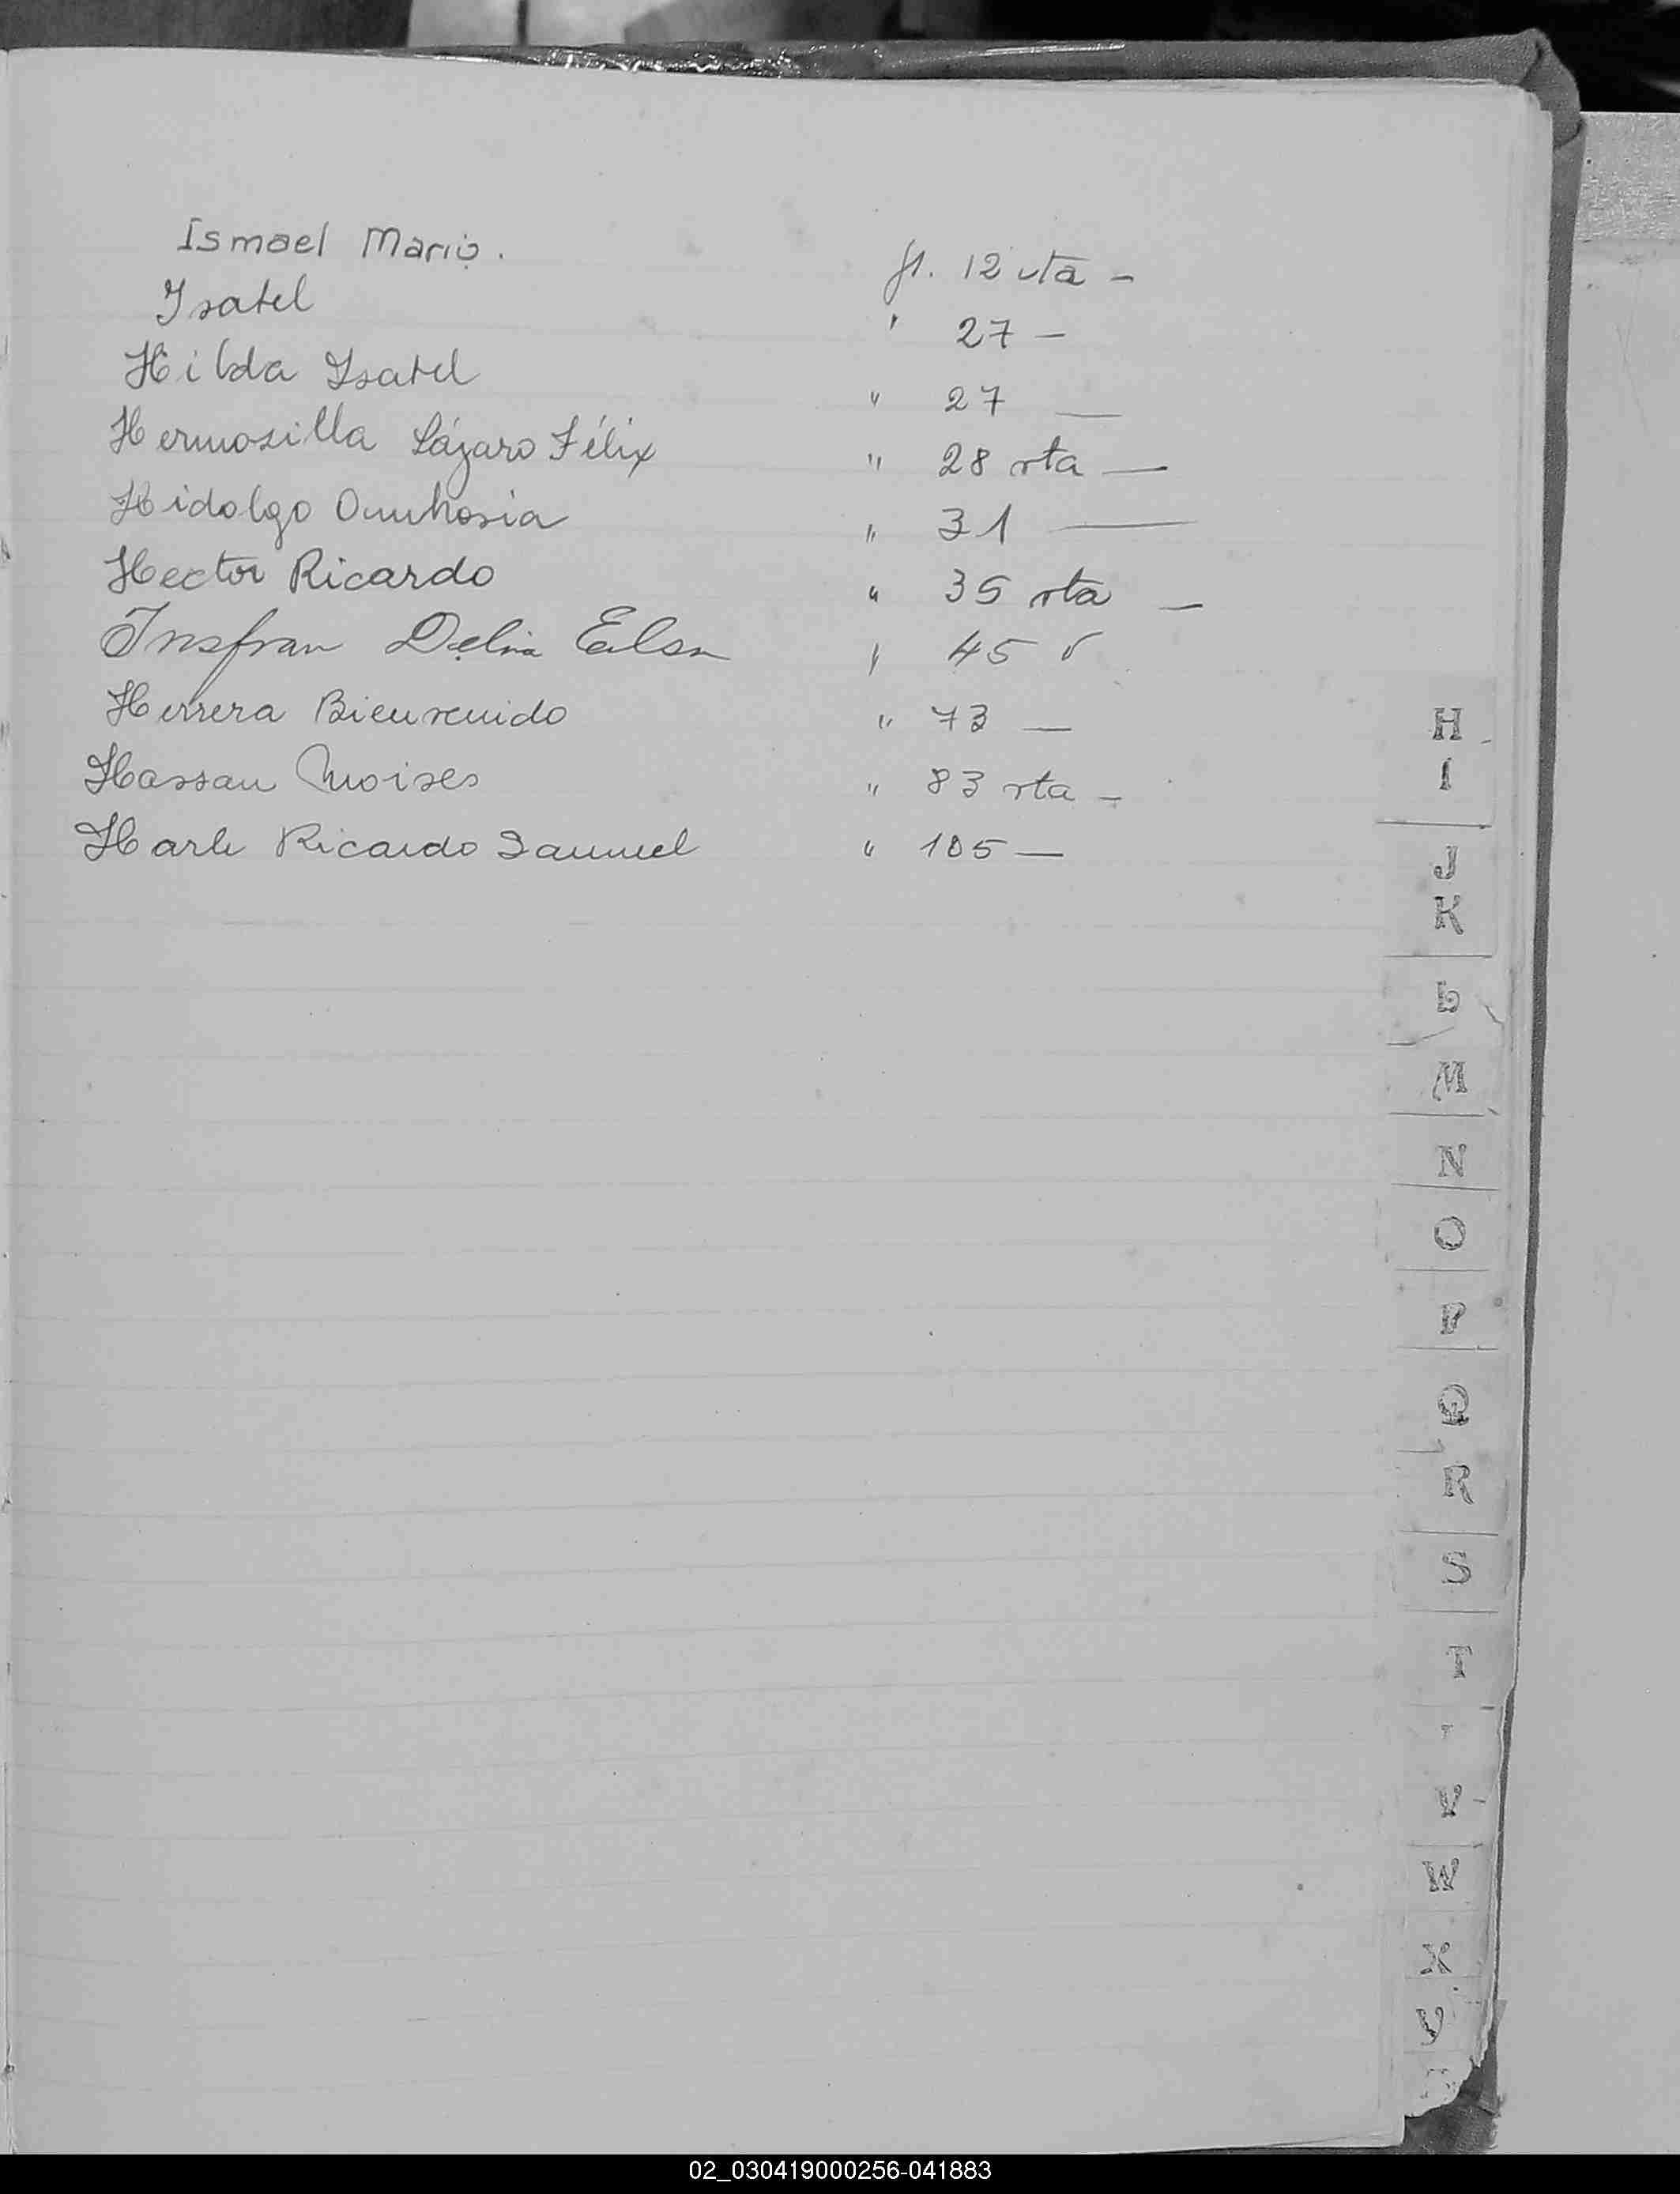 Ismael Mario. fl. 12 vta -
Isabel " 27 -
Hilda Isabel " 27 —
Hermosilla Lázaro Félix " 28 vta —
Hidalgo " 31 —
Hector Ricardo " 35 vta —
Insfran Delia Elsa " 45 v
Herrera Bienvenido " 73 —
Hassan Moises " 83 vta -
Ricardo Samuel " 105 —
H
I
J
K
L
M
N
O
P
Q
R
S
T
V
W
X
Y
02_030419000256-041883